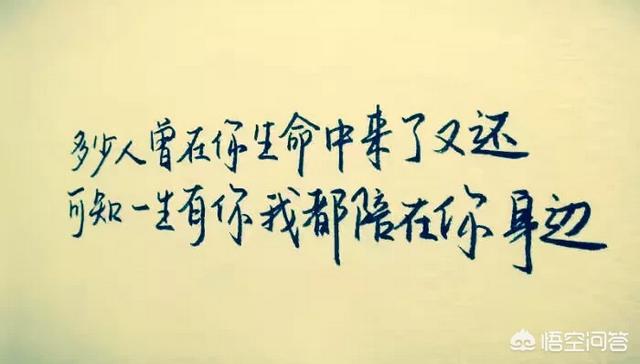 多少人曾在你生命中来了又还
可知一生有你我都陪在你身边
悟空问答